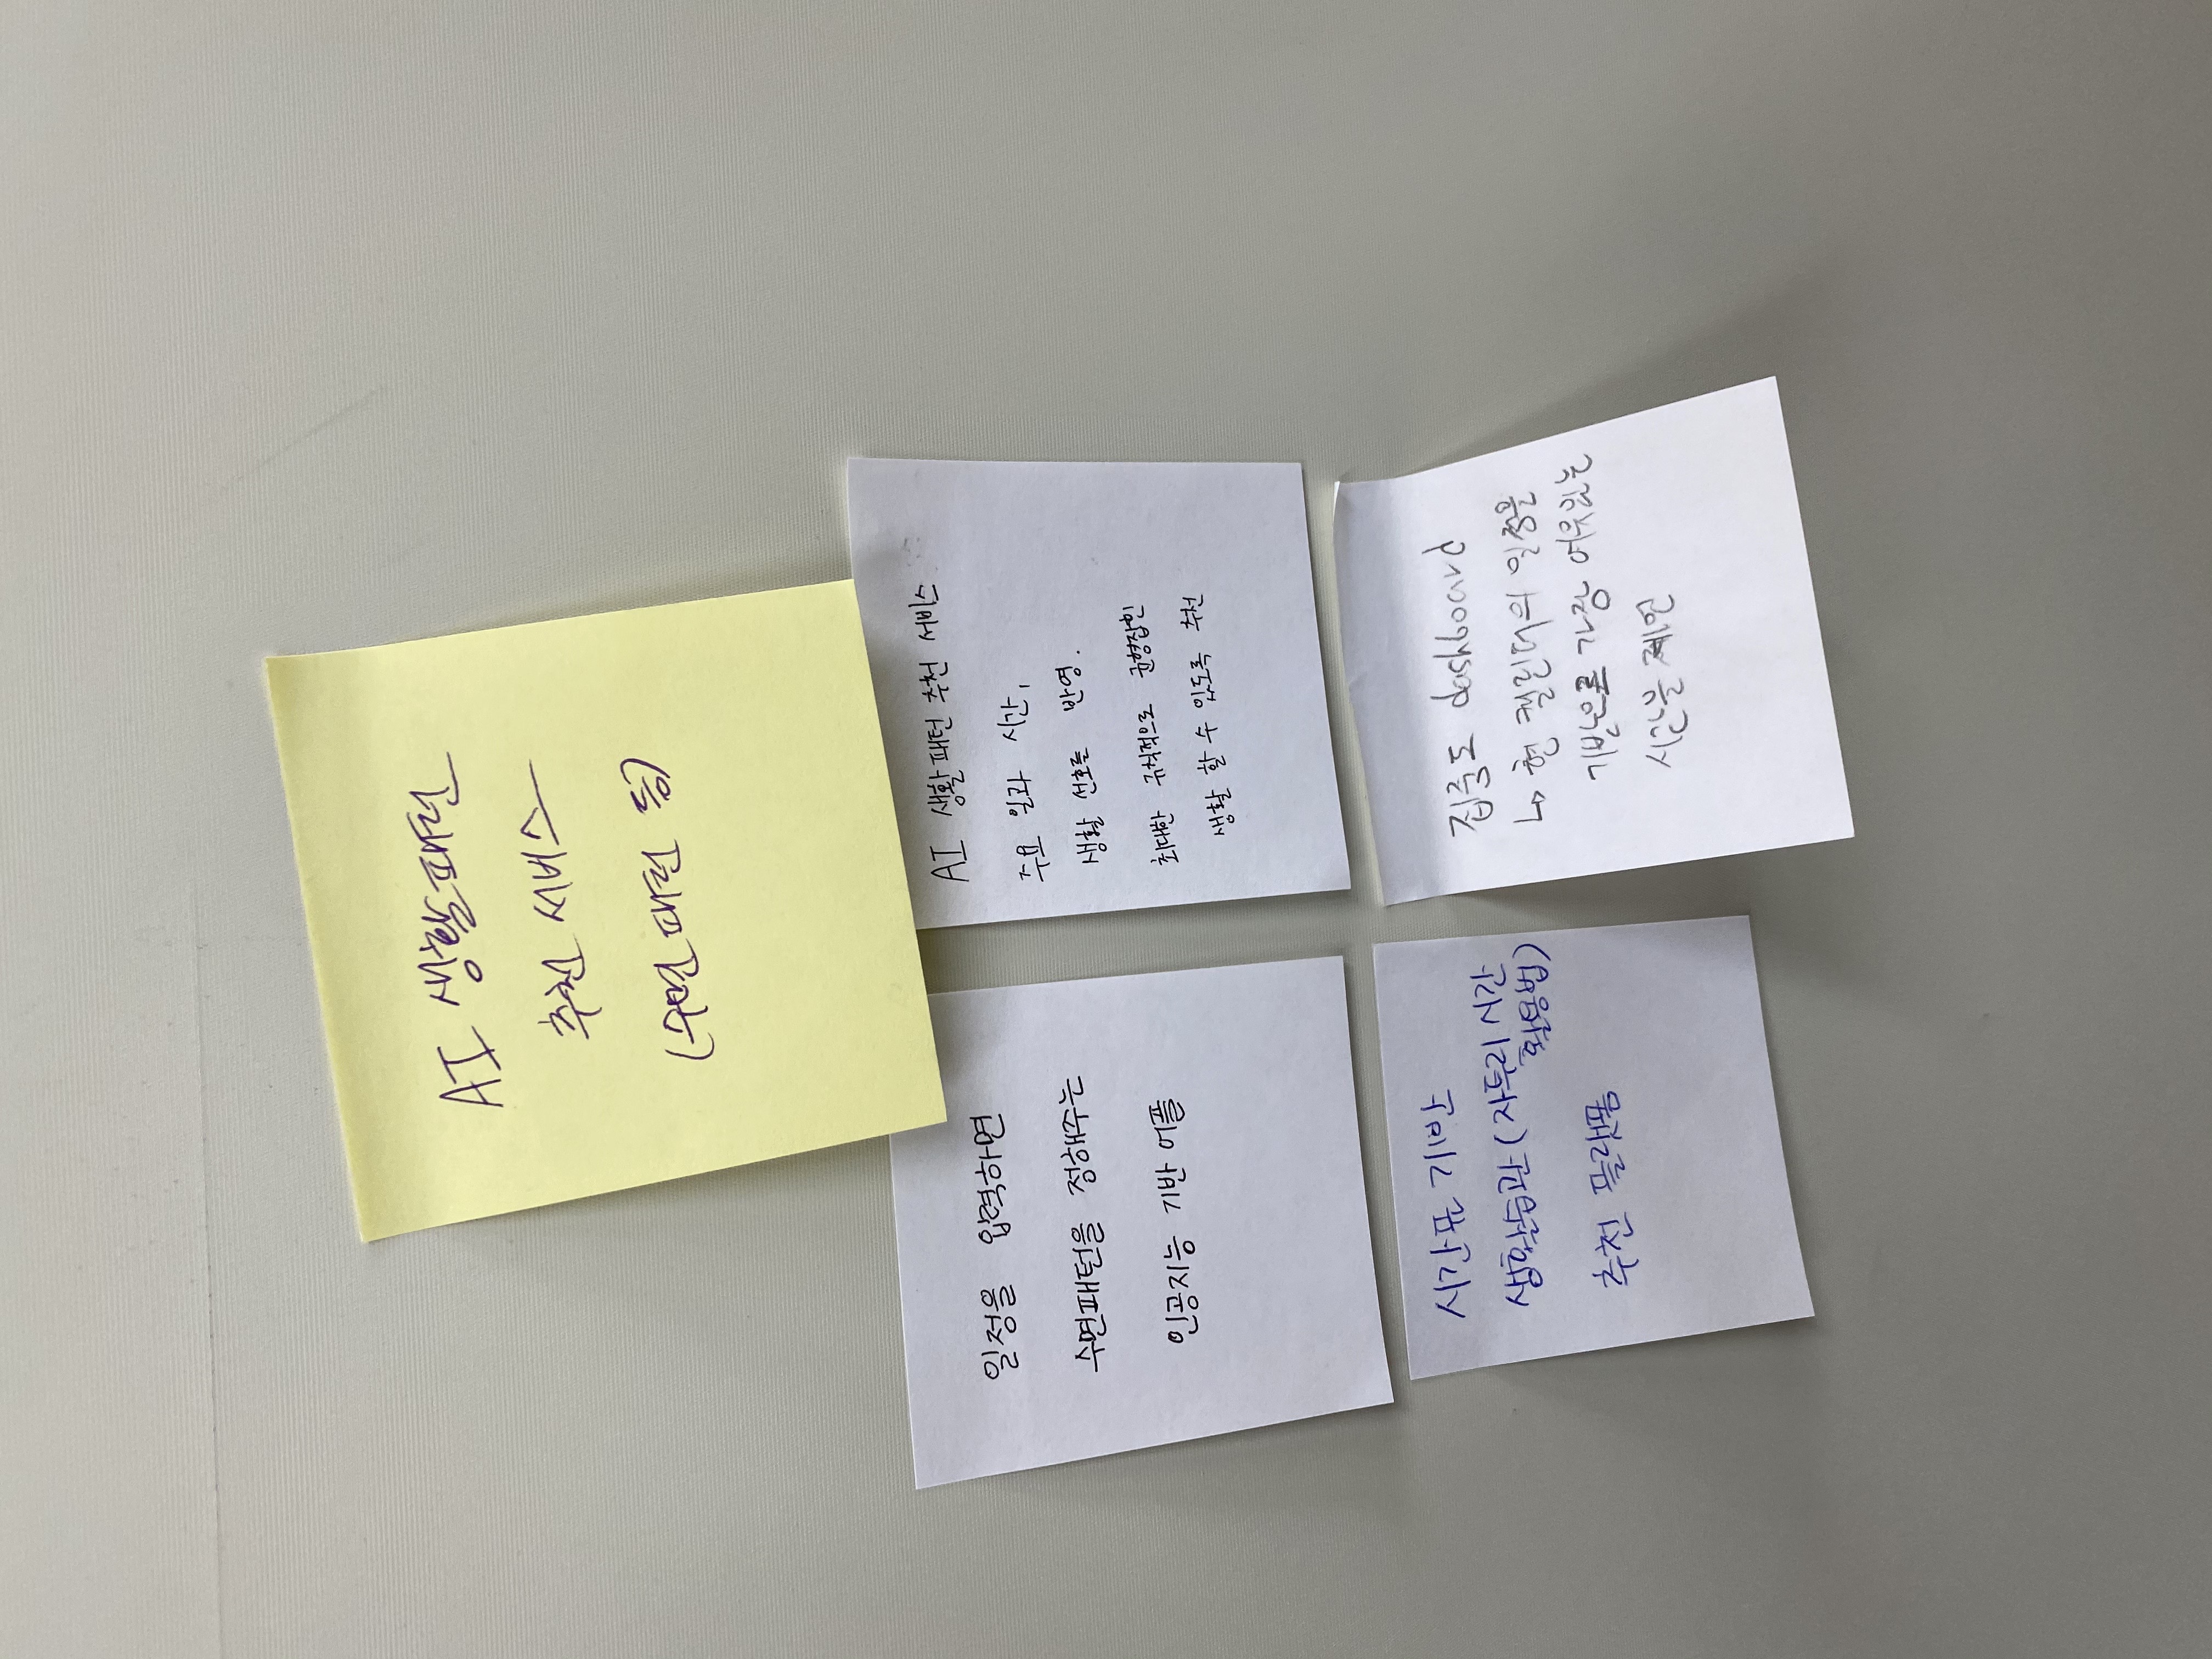 AI 생활패턴
추천 서버스
(수면 패턴 등)
일정을 입력하면
수면패턴을 정해주는
인공지능 기반 어플
AI 생활패턴 추천 서비스
주요 일과 시간,
생활 선호를 반영.
최대한 규칙적으로 균형잡힌
생활 할 수 있도록 추천
시간표 기반
생활습관 (자투리 시간
활용법)
추천 플랫폼
집중도 dashboard
↳ 현 캘린더의 일정을
기반으로 가장 여유있는
시간을 제언